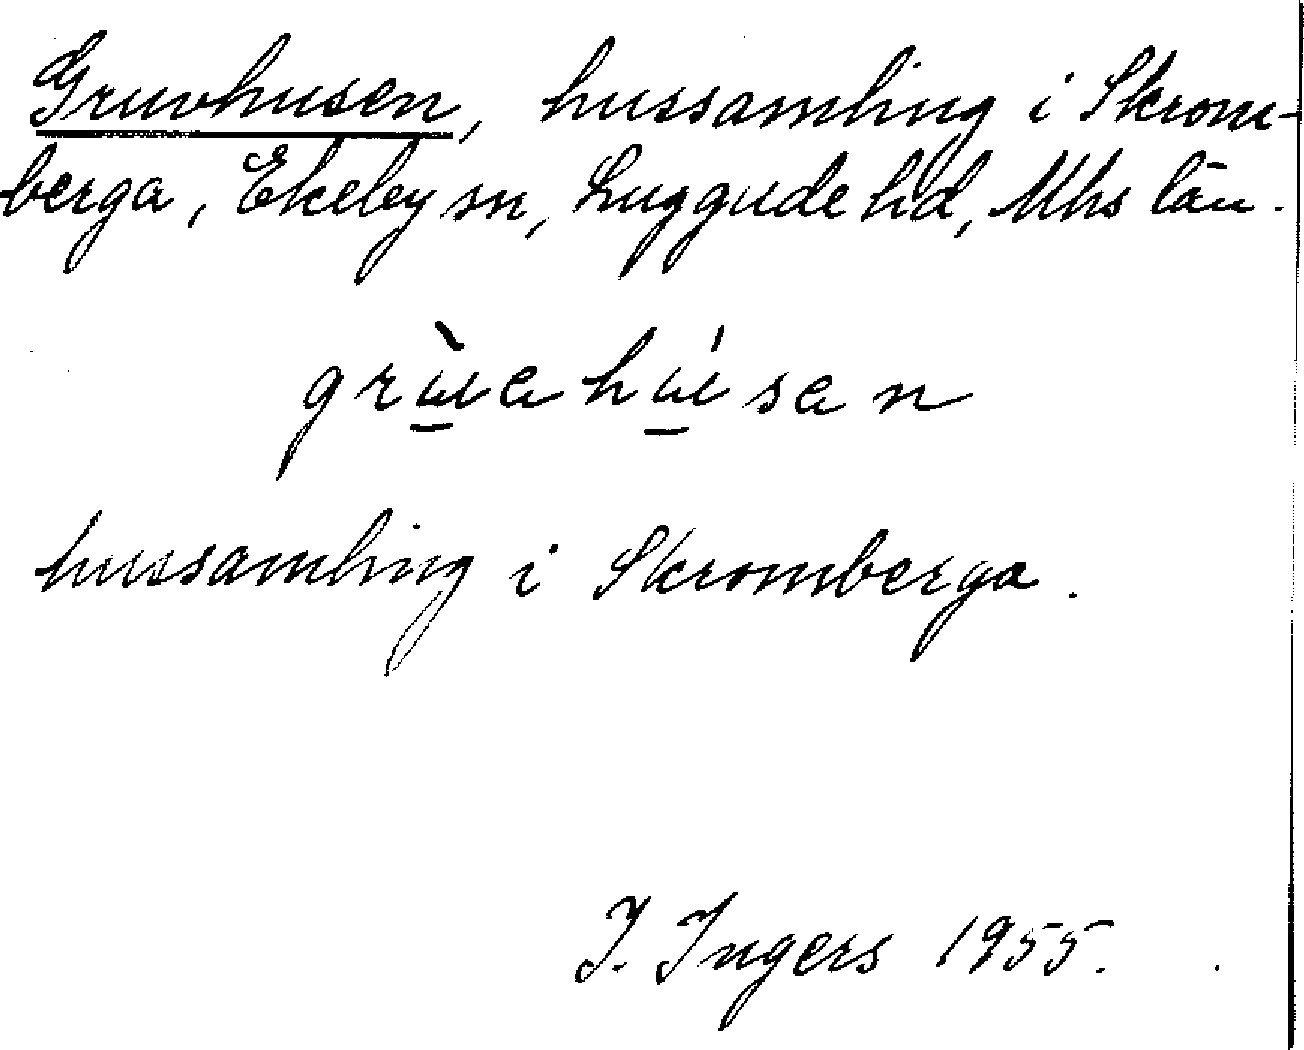 Gruvhusen, hussamling i Skrom-
berga, Ekeby sn, Luggude hd, Mhs län.
grùeahúsean
hussamling i Skromberga.
I. Ingers 1955.